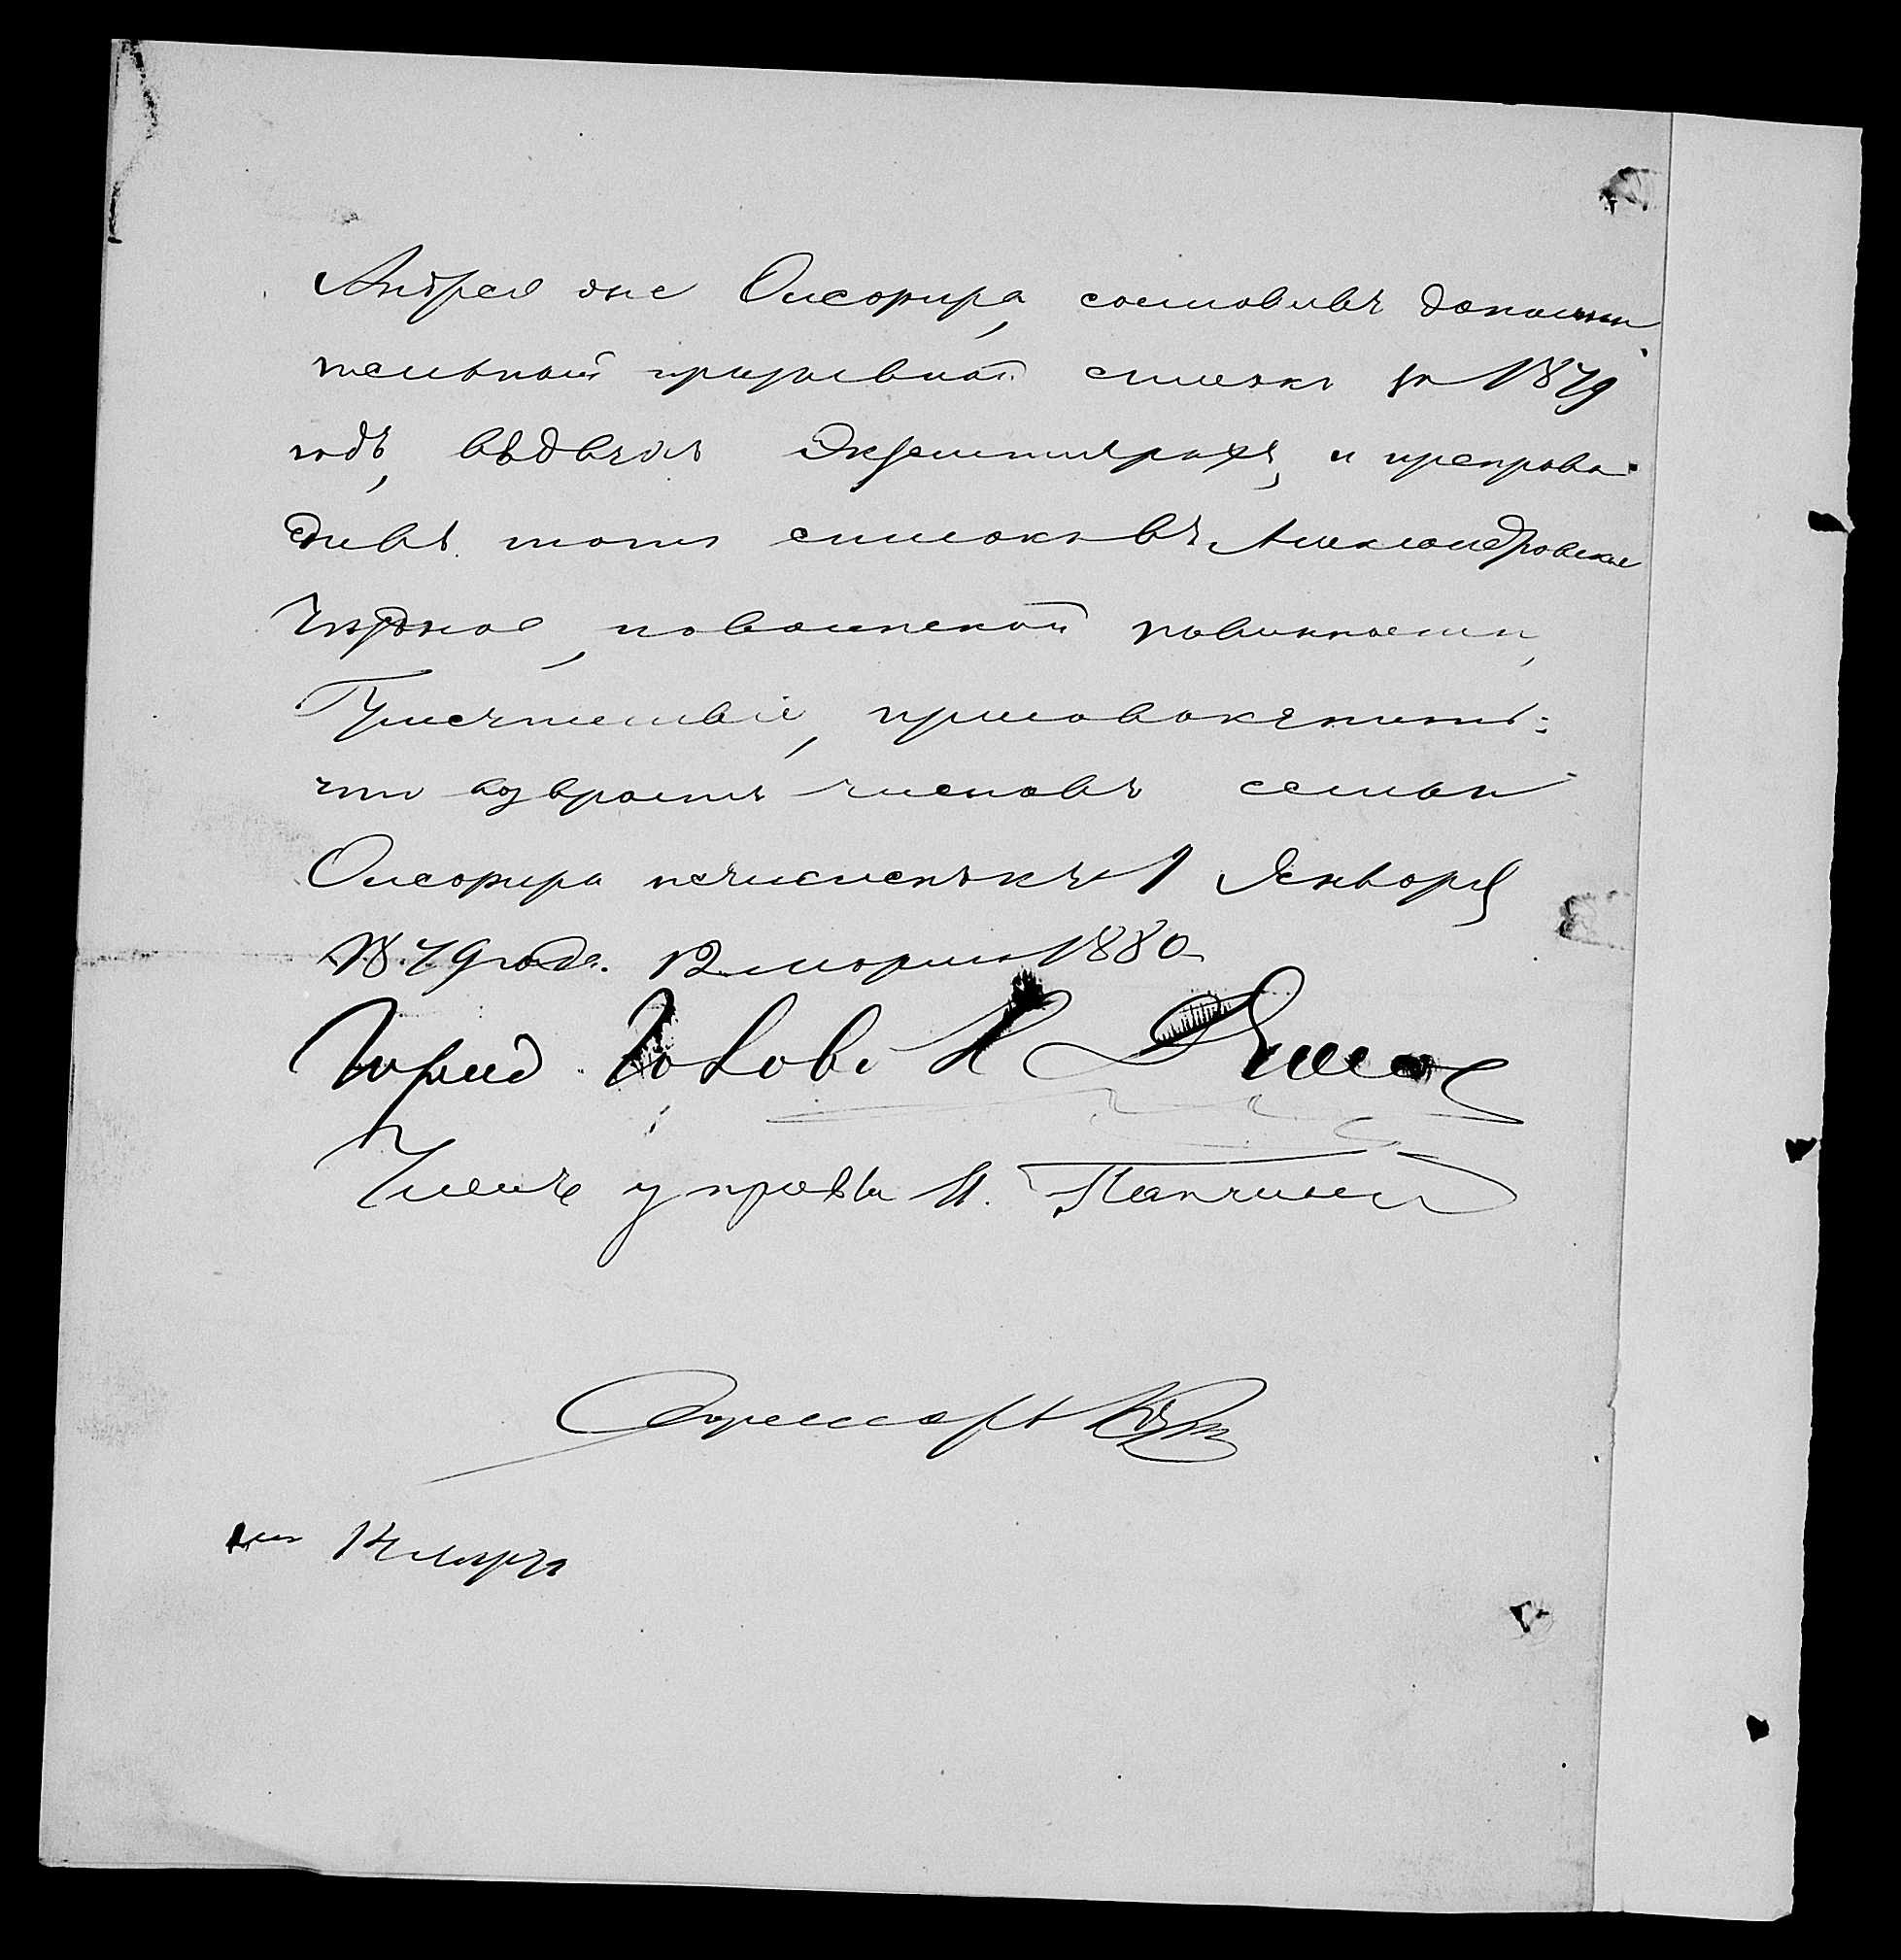 Андрея оне Олсофира, составивъ дополни
тельный призывной списокъ за 1879
годъ, въ двухъ экземплярахъ, и препрово
дивъ тотъ списокъ въ Александровское
Уѣздное, по воинской повинности,
Присутствіе, присовокупить:
что возрастъ членовъ семьи
Олсофира исчисленъ къ 1 Января
1879 года. 12 марта 1880
Город. Голова
Членъ управы П.
14 марта